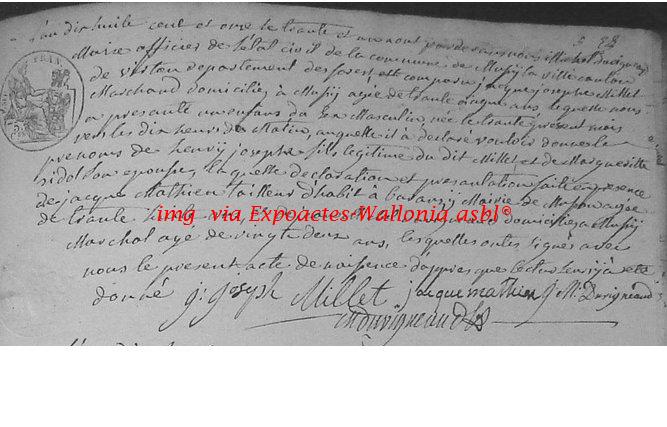 L'an dix huit cent et onze le trente et un aout par devant nous Michel Duvigneaud
Maire officier de l'etat civil de la commune de Mussy la ville canton
de virton departement des forets est comparu jacque josephe Millet
Marchand domicilié à Mussy agé de trente cinque ans lequelle nous
a presenté un enfans du sex Masculin née le trente present mois
vers les dix heures du Matin, auquelle il a declaré vouloir donner le
prenoms de henry josephe fils legitime du dit Millet et de Margueritte
son epouse, laquelle declaration et presentation faite en presence
de jacque Mathieu tailleur d'habit à Mairie de agee
de trente domicilies a Mussy
Marchal age de vingt deux ans, lesquelles ont signés avec
nous le present acte de naissence d'appres que lecture leurs y a eté
donné j: joseph Millet jacque mathieu M: Duvigneaud
mduvigneaud
img via Expoactes Wallonia asbl®